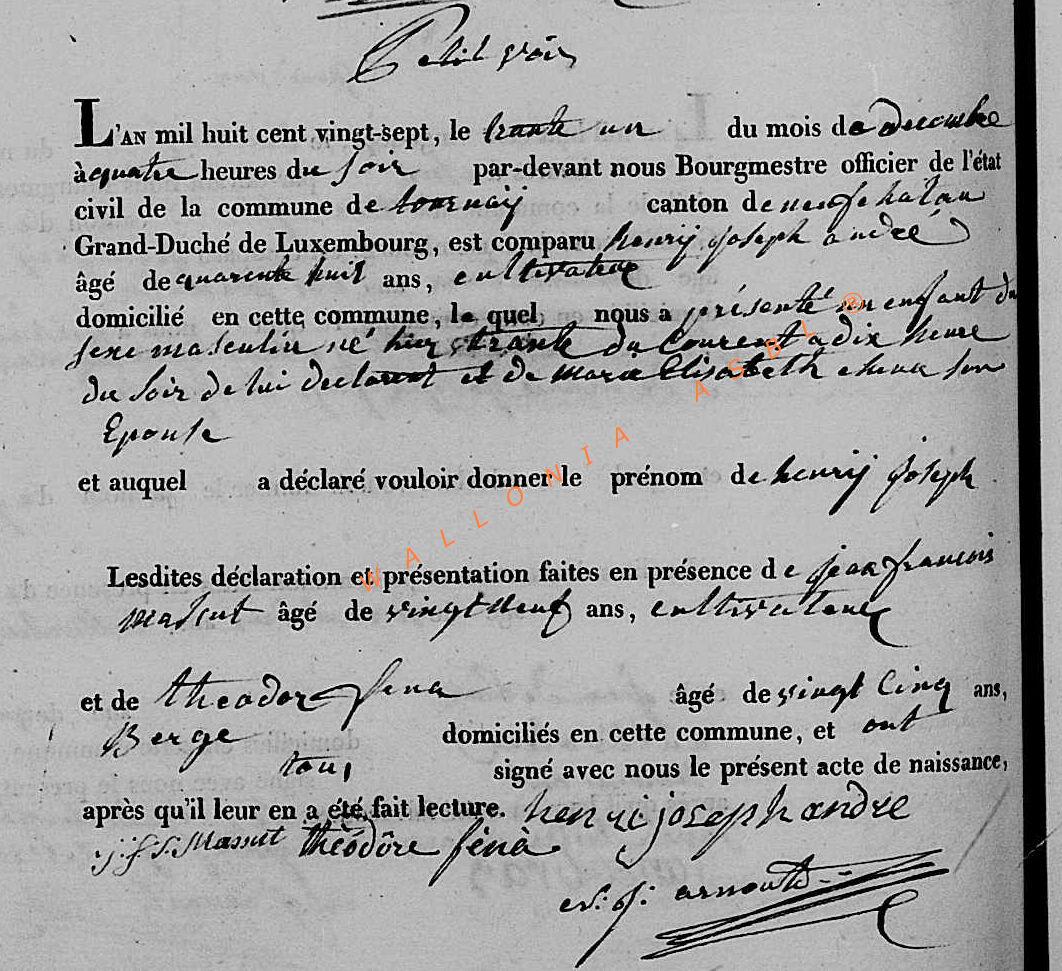 Petit voir
L'AN mil huit cent vingt-sept, le trante un du mois de decembre
à quatre heures du soir par-devant nous Bourgmestre officier de l'état
civil de la commune de tournaÿ canton de neufchatau
Grand-Duché de Luxembourg, est comparu henrÿ joseph andré
âgé de quarente huit ans, cultivateur
domicilié en cette commune, le quel nous a présenté un enfant du
sexe masculin né hier trante du Courent a dix heure
du soir de lui declarent et de marie Elisabeth son
Epouse
et auquel a déclaré vouloir donner le prénom de henrÿ joseph
Lesdites déclaration et présentation faites en présence de jean francois
massut âgé de vingt neuf ans, cultivateur
et de theodor fena âgé de vingt Cinq ans,
Berge domiciliés en cette commune, et ont
tous signé avec nous le présent acte de naissance,
après qu'il leur en a été fait lecture. henri joseph andre
j. f. S. Massut théodôre fénà
arnould
WALLONIA ASBL ®